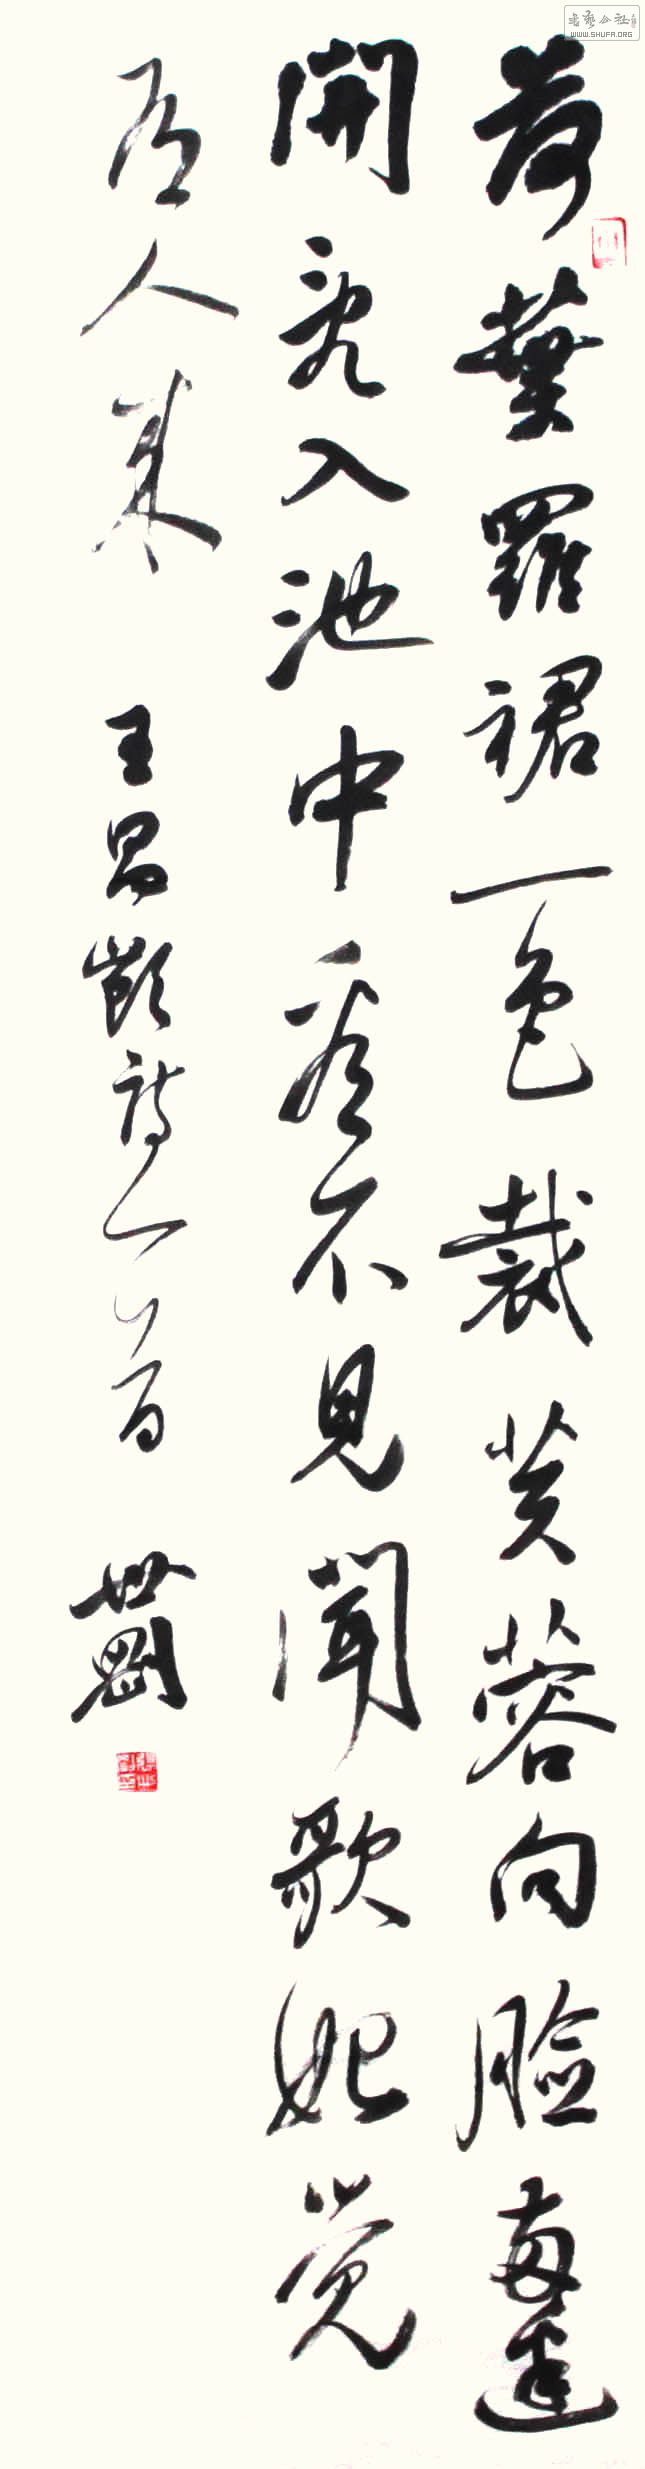 書藝公社
WWW.SHUFA.ORG
荷葉羅裙一色裁芙蓉向臉兩邊
開亂入池中看不見聞歌始覺
有人来 王昌齡詩一首 世剛